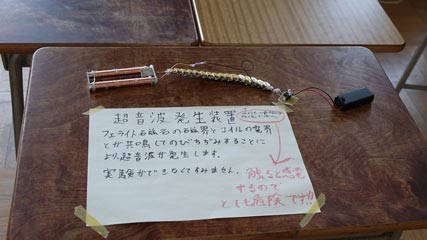 超音波発生装置
フェライト石磁石の石磁界とコイルの電界
とが共鳴してのびちぢみすることに
より超音波が発生します。
実験ができなくてすみません。
触ると感電
するので
とても危険です!!